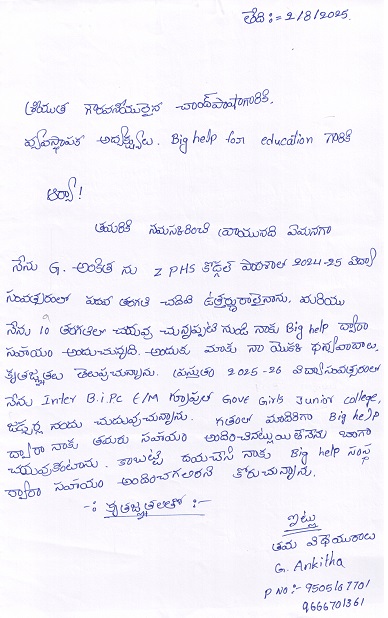 తేది:= 2/8/2025.
శ్రీయుత గౌరవనీయులైన చాంద్‌పాషాగారికి,
వ్యవస్థాపక అధ్యక్షులు. Big help for education గారికి
ఆర్యా!
తమరికి నమస్కరించి వ్రాయునది ఏమనగా
నేను G. అంకిత ను ZPHS కొడ్గల్ పాఠశాల 2024-25 విద్యా
సంవత్సరంలో పదవ తరగతి చదివి ఉత్తీర్ణురాలైనాను. మరియు
నేను 10 తరగతిలో చదువు చున్నప్పటి నుండి నాకు Big help ద్వారా
సహాయం అందుచున్నది. అందుకు మాకు నా యొక్క ధన్యవాదాలు,
కృతజ్ఞతలు తెలుపుచున్నాను. ప్రస్తుతం 2025-26 విద్యాసంవత్సరంలో
నేను Inter B.i.Pc E/M గ్రూపులో Gove Girls Junior college,
నందు చదువుచున్నాను. గతంలో మాదిరిగా Big help
ద్వారా నాకు తమరు సహాయం అందించినట్లయితే నేను బాగా
చదువుకుంటాను. కాబట్టి దయచేసి నాకు Big help సంస్థ
ద్వారా సహాయం అందించగలరని కోరుచున్నాను.
-: కృతజ్ఞతలతో :-
ఇట్లు
తమ విధేయురాలు
G. Ankitha
P NO:- 9505167701
9666701361